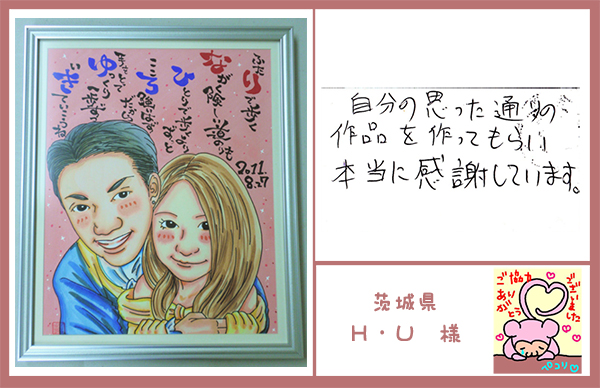 ふたりで歩く
ながく険しい道のりも
ひとりで歩むよりずっと
こころ強いはず
手をとって
ゆっくり一歩ずつ
いきていこうね
2011.
8.27
自分の思った通りの
作品を作ってもらい
本当に感謝しています。
茨城県
H・U 様
ご協力
ありがとう
ございました
ペコリ